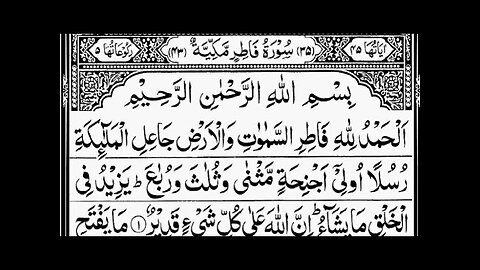 اٰیَاتُهَا ٤٥ (٣٥) سُوْرَةُ فَاطِرٍ مَّكِّيَّةٌ (٤٣) رُكُوْعَاتُهَا ٥
بِسْمِ اللّٰهِ الرَّحْمٰنِ الرَّحِيْمِ
اَلْحَمْدُ لِلّٰهِ فَاطِرِ السَّمٰوٰتِ وَالْاَرْضِ جَاعِلِ الْمَلٰٓئِكَةِ
رُسُلًا اُولِيْٓ اَجْنِحَةٍ مَّثْنٰى وَثُلٰثَ وَرُبٰعَ ؕ يَزِيْدُ فِى
الْخَلْقِ مَا يَشَآءُ ؕ اِنَّ اللّٰهَ عَلٰى كُلِّ شَىْءٍ قَدِيْرٌ ﴿١﴾ مَا يَفْتَحِ